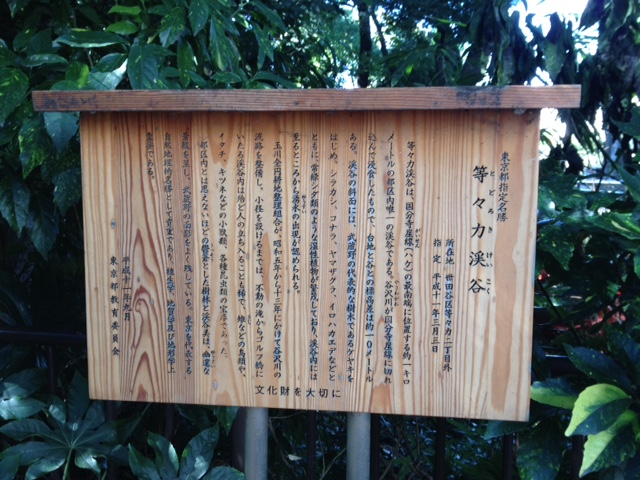 東京都指定名勝
等々力渓谷
とどろきけいこく
所在地 世田谷区等々力二丁目外
指定 平成十一年三月三日
等々力渓谷は、国分寺崖線(ハケ)の最南端に位置する約一キロ
メートルの都区内唯一の渓谷である。谷沢川が国分寺崖線に切れ
込んで浸食したもので、台地と谷との標高差は約10メートル
ある。渓谷の斜面には、武蔵野の代表的な樹木であるケヤキを
はじめ、シラカシ、コナラ、ヤマザクラ、イロハカエデなどと
ともに、常緑シダ類のような湿性植物が繁茂しており、渓谷内には
至るところから湧水の出現が認められる。
玉川全円耕地整理組合が、昭和五年から十三年にかけて谷沢川の
流路を整備し、小径を設けるまでは、不動の滝からゴルフ橋に
いたる渓谷内は殆ど人の立ち入ることも稀で、雉などの鳥類や、
イタチ、キツネなどの小獣類、各種昆虫類の宝庫であった。
都区内とは思えないほどの鬱蒼とした樹林と渓谷美は、幽邃な
景観を呈し、武蔵野の面影をよく残している。東京を代表する
自然地理的名勝として貴重であり、植生学、地質学及び地形学上
重要である。
平成十一年
東京都教育委員会
文化財を大切に